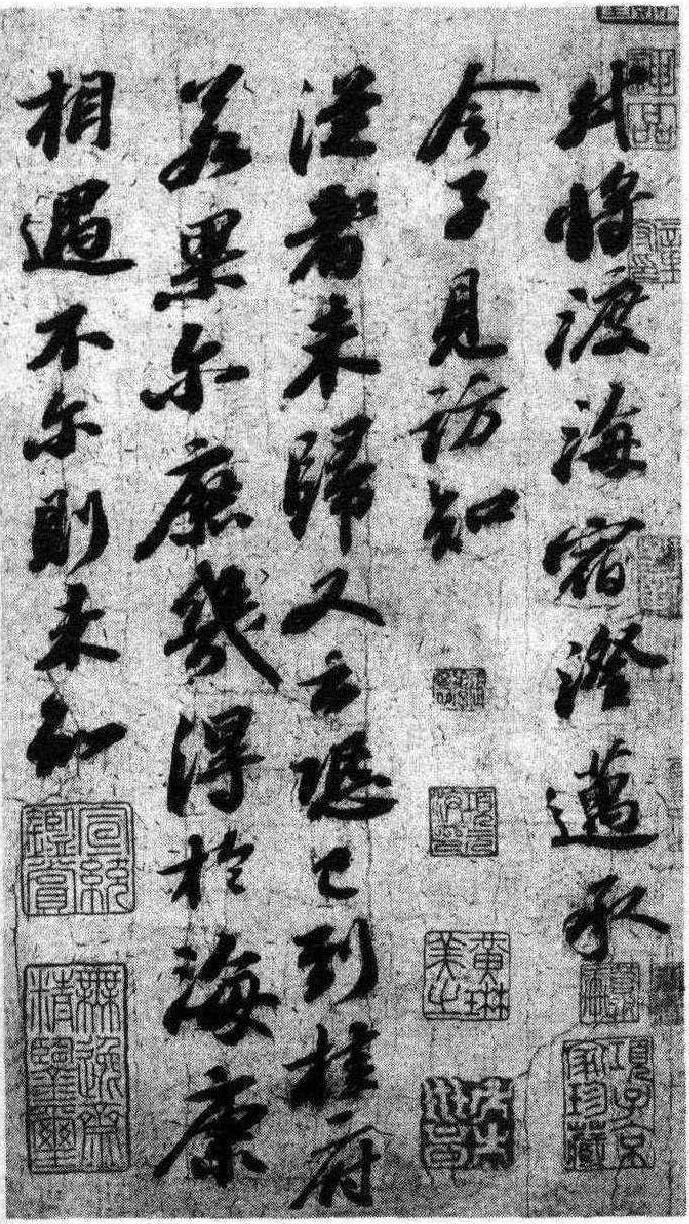 軾將渡海宿澄邁承
令子見訪知
從者未歸又云恐已到桂府
若果尔庶幾得於海康
相遇不尔則未知
神品
項子京家珍藏
黃琳美之
宣統鑑賞
無逸齋精鑒璽